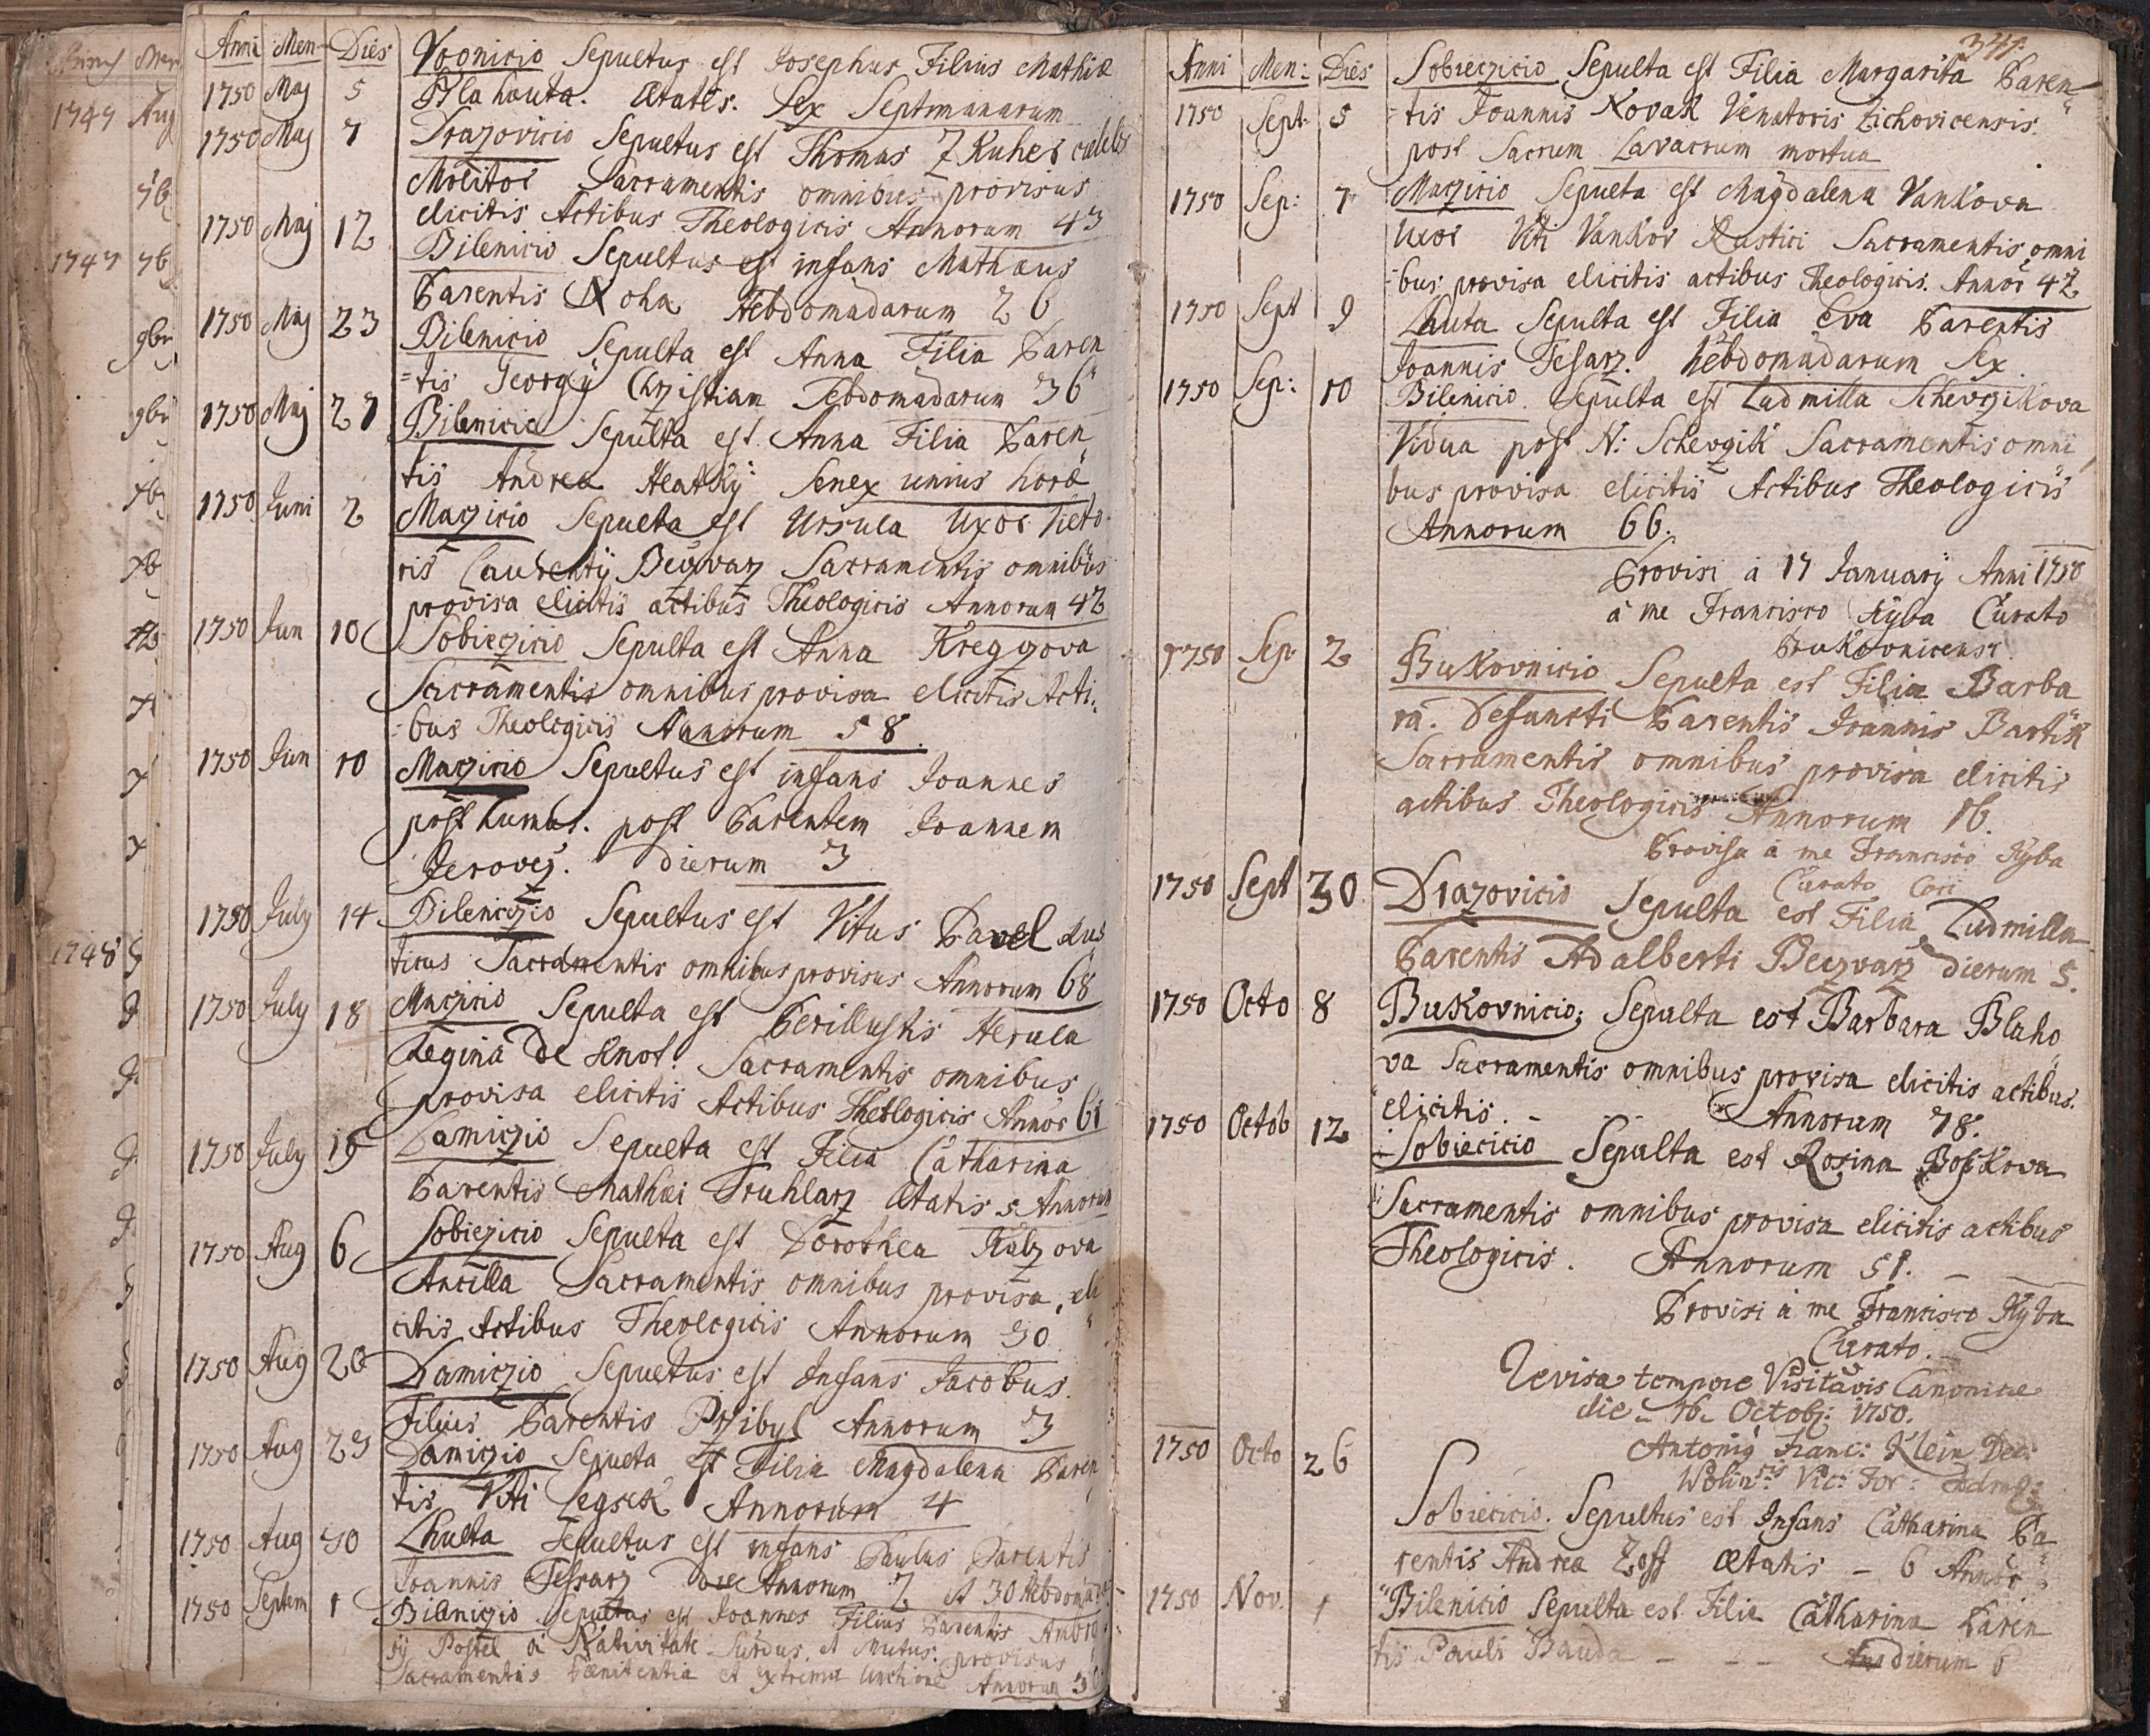 Anni Men Dies Voonicio Sepultus est Josephus Filius Mathiæ
1750 Maj 5 Blahauta. Ætatis. Sex Septimanarum
1750 Maj 7 Drazovicio Sepultus est Thomas Zkuher cælebs
Molitor Sacramentis omnibus provisus
elicitis Actibus Theologicis Annorum 43
1750 Maj 12 Bilenicio Sepultus est infans Mathæus
Parentis Noha Hebdomadarum 26
1750 Maj 23 Bilenicio Sepulta est Anna Filia Paren
=tis Georgÿ Chrzistian Hebdomadarum 36
1750 Maj 27 Bilenicio Sepulta est Anna Filia Paren
tis Andreæ Heatkÿ Senex unius horæ
1750 Juni 2 Maczicio Sepulta est Ursula Uxor Victo
ris Laurentÿ Beczvarz Sacramentis omnibus
provisa elicitis actibus Theologicis Annorum 42
1750 Jun 10 Sobieczicio Sepulta est Anna Kregczova
Sacramentis omnibus provisa elicitis Acti
=bus Theologicis Annorum 58
1750 Jun 10 Maczicio Sepultus est infans Joannes
posthumus. post Parentem Joannem
Jerovez. dierum 3
1750 July 14 Bileniczio Sepultus est Vitus Pavel Rus
ticus Sacramentis omnibus provisus Annorum 68
1750 July 18 Maczicio Sepulta est Perillustis Herula
Regina De Hnot. Sacramentis omnibus
provisa elicitis Actibus Theologicis Annor 61
1750 July 19 Damiczio Sepulta est Filia Catharina
Parentis Mathæi Truhlarz Ætatis 5 Annorum
1750 Aug 6 Sobiezicio Sepulta est Dorothea Kubzova
Ancilla Sacramentis omnibus provisa, eli
citis Actibus Theologicis Annorum 30
1750 Aug 20 Damiczio Sepultus est Infans Jacobus.
Filius Parentis Przibyl Annorum 3
1750 Aug 29 Damiczio Sepulta est Filia Magdalena Paren
tis Viti Legsek Annorum 4
1750 Aug 30 Lhulta Sepultus est infans Paulus Parentis
Joannis Tessarz Annorum 2 et 30 Hebdoma
1750 Septem 1 Bileniczio Sepultus est Joannes Filius Parentis Ambro
sÿ Postel à Nativitate Surdus, et Mutus: provisus
Sacramentis Pænitentia et Extrema Unctione Annorum 30
341.
Anni Men: Dies Sobieczicio Sepulta est Filia Margarita Paren
1750 Sept. 5 =tis Joannis Novak Venatoris Zichovicensis.
post Sacrum Lavacrum mortua
1750 Sep: 7 Maczicio Sepulta est Magdalena Vankova
Uxor Viti Vankor Rustici Sacramentis omni
=bus provisa elicitis actibus Theologicis. Annor 42
1750 Sept 9 Lhuta Sepulta est Filia Eva Parentis
Joannis Tesarz. hebdomadarum Sex.
1750 Sep: 10 Bilenicio. Sepulta est Ludmilla Schevzikova
Vidua post N: Schevzik Sacramentis omni
bus provisa elicitis Actibus Theologicis
Annorum 66.
Provisi à 17 Januarÿ Anni 1750
à me Francisco Ryba Curato
Bukovnicensi
1750 Sep 2 Bukovnicio Sepulta est Filia Barba
ra. Defuncti Parentis Joannis Bartik
Sacramentis omnibus provisa elicitis
actibus Theologicis Annorum 16.
Provisa à me Francisco Ryba
Curato Loci
1750 Sept 30 Drazovicio Sepulta est Filia Ludmilla
Parentis Adalberti Beczvarz dierum 5.
1750 Octo 8 Bukovnicio; Sepulta est Barbara Blaho
va Sacramentis omnibus provisa elicitis actibus.
elicitis. - - - Annorum 78.
1750 Octob 12 Sobiecicio Sepulta est Rosina Boskova
Sacramentis omnibus provisa elicitis actibus
Theologicis. Annorum 51. -
Provisi à me Francisco Ryba
Curato.
Revisa tempore Visitaõis Canonicae
die - 16 - Octobr: 1750.
Antoniq Franc: Klein Dec:
Wolin:sis Vic: For:
1750 Octo 26 Sobiecicio. Sepultus est Infans Catharina Pa
rentis Andreæ Zoff Ætatis - 6 Annor.
1750 Nov. 1 Bilenicio Sepulta est Filia Catharina Paren
tis Pauli Bauda - - - dierum 6